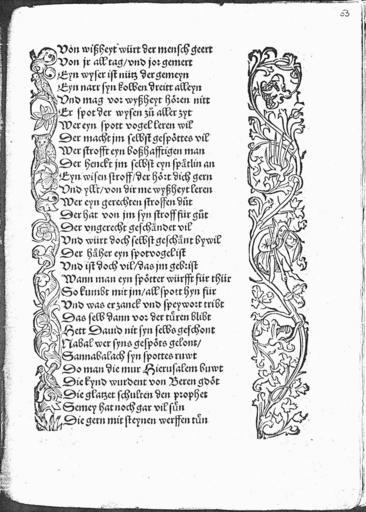 53
Von wißheyt würt der mensch geert
Von jr all tag/vnd jor gemert
Eyn wyser ist nütz der gemeyn
Eyn narr syn kolben dreitt alleyn
Vnd mag vor wyßheyt hören nitt
Er spot der wysen zů aller zyt
Wer eyn spott vogel leren wil
Der macht jm selbst gespöttes vil
Wer strofft eyn boßhafftigen man
Der henckt jm selbst eyn spätlin an
Eyn wisen stroff/der hört dich gern
Vnd yllt/von dir me wyßheyt leren
Wer eyn gerechten stroffen důt
Der hat von jm syn stroff für gůt
Der vngerecht geschändet vil
Vnd würt doch selbst geschänt bywil
Der häher eyn spotvogel ist
Vnd ist doch vil/das jm gebrist
Wann man eyn spötter würfft für thür
So kumbt mit jm/all spott hyn für
Vnd was er zanck vnd speywort tribt
Das selb dann vor der türen blibt
Hett Dauid nit syn selbs geschont
Nabal wer syns gespöts gelont/
Sannabalach syn spottes ruwt
Do man die mur Hierusalem buwt
Die kynd wurdent von Beren gdöt
Die glatzet schulten den prophet
Semey hat noch gar vil sün
Die gern mit steynen werffen tůn